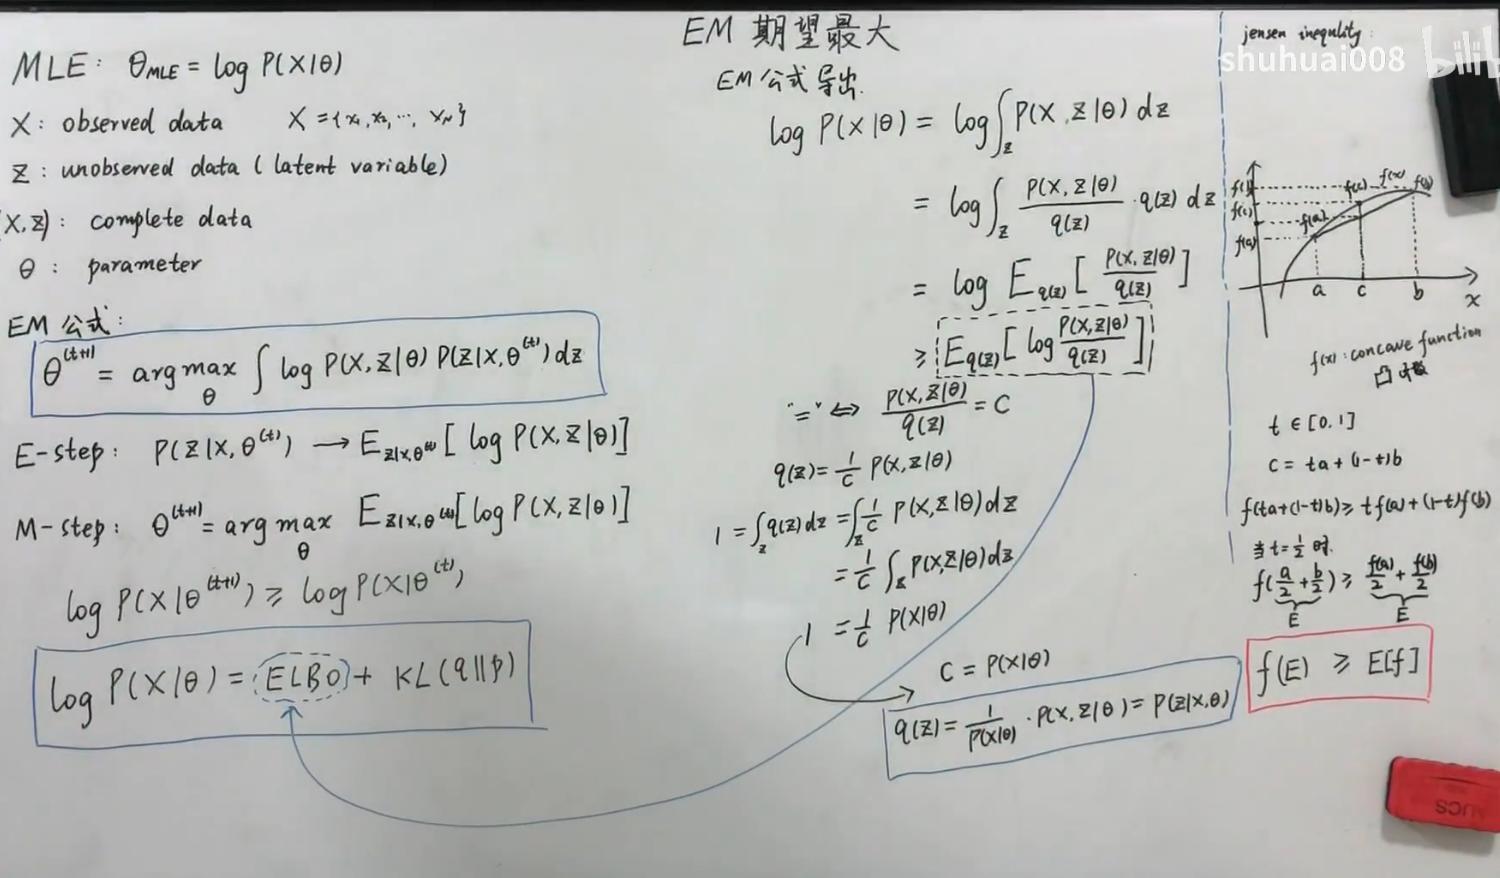 EM 期望最大
MLE: θ_MLE = log P(X|θ)
X: observed data X = {x₁, x₂, ..., x_N}
Z: unobserved data (latent variable)
(X,Z): complete data
θ: parameter
EM 公式:
θ^(t+1) = arg max_θ ∫ log P(X,Z|θ) P(Z|X,θ^(t)) dz
E-step: P(Z|X,θ^(t)) → E_{Z|X,θ^(t)} [log P(X,Z|θ)]
M-step: θ^(t+1) = arg max_θ E_{Z|X,θ^(t)} [log P(X,Z|θ)]
log P(X|θ^(t+1)) ≥ log P(X|θ^(t))
log P(X|θ) = ELBO + KL(q||p)
EM 公式 导出.
log P(X|θ) = log ∫_Z P(X,Z|θ) dz
= log ∫_Z P(X,Z|θ)/q(z) · q(z) dz
= log E_q(z) [P(X,Z|θ)/q(z)]
≥ E_q(z) [log P(X,Z|θ)/q(z)]
"=" ⇔ P(X,Z|θ)/q(z) = C
q(z) = 1/C P(X,Z|θ)
1 = ∫_Z q(z) dz = ∫_Z 1/C P(X,Z|θ) dz
= 1/C ∫_Z P(X,Z|θ) dz
1 = 1/C P(X|θ)
C = P(X|θ)
q(z) = 1/P(X|θ) · P(X,Z|θ) = P(Z|X,θ)
jensen inequlity:
shuhuai008 bilibili
f(c) f(x) f(b)
f(c)
f(a) f(a)
a c b x
f(x): concave function
凸函数
t ∈ [0,1]
c = ta + (1-t)b
f(ta+(1-t)b) ≥ tf(a) + (1-t)f(b)
当 t = 1/2 时.
f(a/2 + b/2) ≥ f(a)/2 + f(b)/2
E E
f(E) ≥ E[f]